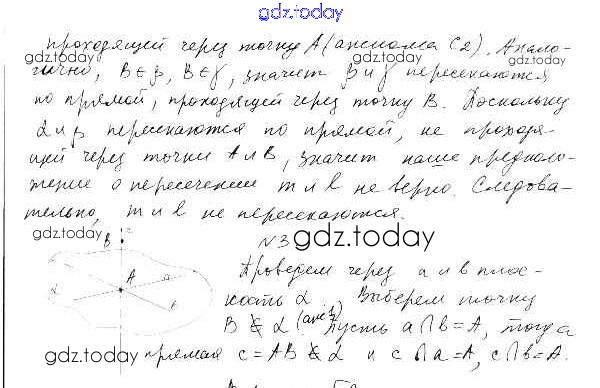 gdz.today
проходящей через точку A (аксиома C2). Анало-
гично, B ∈ β, B ∈ γ, значит β и γ пересекаются
по прямой, проходящей через точку B. Поскольку
α и β пересекаются по прямой, не проходя-
щей через точки A и B, значит наше предполо-
жение о пересечении m и l не верно. Следова-
тельно, m и l не пересекаются.
gdz.today
N3 gdz.today
B
A a
α b
Проведем через a и b плос-
кость α. Выберем точку
B ∉ α. Пусть a ∩ b = A, тогда
gdz.today прямая c = AB ⊄ α и c ∩ a = A, c ∩ b = A.